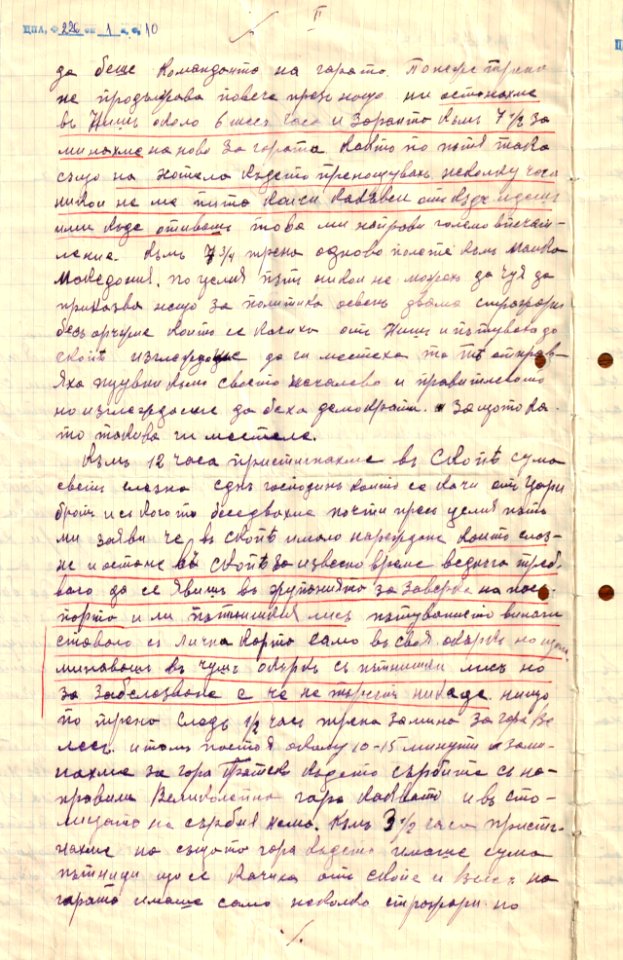 ЦПА, Ф 226 оп 1 а.е. 10
II
да беше командантъ на гарата. Понеже трена
не продължава повече презъ нощьо ни останахме
въ Нишъ около 6 шесъ часа и заранта къмъ 7 1/2 за
минахме на ново за гарата както по пътя така
също на хотела където пренощувахъ неколку часа
никои не ме пита какси какъвси откъде идешъ
или къде отивашъ това ми направи големо впечат-
ление. Къмъ 7 3/4 трена одново полете къмъ Майка
Македония, по целия пътъ никои не можахъ да чуя да
приказва нещо за политика освенъ двама стражари
безъ оръжие които се качиха отъ Нишъ и пътуваха до
Скопѣ изглеждаше да ги местеха та тѣ отправ-
яха псувни къмъ своето началство и правителството
но изглеждаше да беха демократи. защото ка-
то такива ги местеле.
Къмъ 12 часа пристигнахме въ Скопѣ сума
светъ слезна единъ господинъ които се качи отъ Цари
бротъ и съ кого то беседвахме почти презъ целия пътъ
ми заяви че въ Скопѣ имало нареждане които слез-
не и остане въ Скопѣ за известно време веднага треб-
вало да се явишъ въ за заверка на пас-
порта и ли пътнишкия лисъ пътуванието винаги
ставало съ лична карта само въ своя окърхъ но щомъ
минавашъ въ чуждъ окърхъ съ пътнишки лисъ но
за забелезване е че не търсятъ никаде нищо
по трена следъ 1/2 часъ трена замина за гара Ве
лесъ. и тамъ постоя около 10-15 минути и зами-
нахме за гара където сърбите съ на-
правили Великолепна гара каквато и въ сто-
лицата на сърбия нема. Къмъ 3 1/2 часа присти-
нахме на същата гара където имаше сума
пътници що се качиха отъ Скопе и Велесъ на
гарата имаше само неколко стражари но
./.